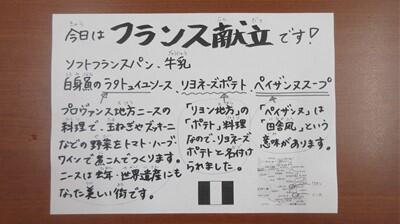 今日はフランス献立です!
ソフトフランスパン、牛乳
白身魚のラタトゥイユソース、リヨネーズポテト、ペイザンヌスープ
プロヴァンス地方ニースの
料理で、玉ねぎやズッキーニ
などの野菜をトマト・ハーブ・
ワインで煮こんでつくります。
ニースは去年、世界遺産にも
なった美しい街です。
「リヨン地方」の
「ポテト」料理
なので、リヨネーズ
ポテトと名付けら
れました。
「ペイザンヌ」は
「田舎風」という
意味があります。